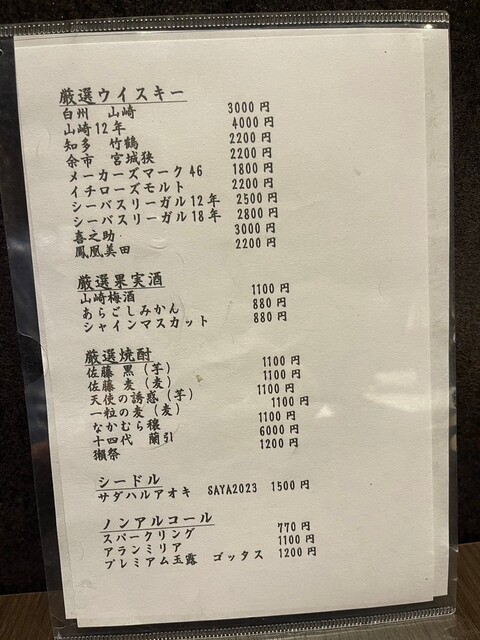 厳選ウイスキー
白州　山崎　3000円
山崎12年　4000円
知多　竹鶴　2200円
余市　宮城狭　2200円
メーカーズマーク46　1800円
イチローズモルト　2200円
シーバスリーガル12年　2500円
シーバスリーガル18年　2800円
喜之助　3000円
鳳凰美田　2200円
厳選果実酒
山崎梅酒　1100円
あらごしみかん　880円
シャインマスカット　880円
厳選焼酎
佐藤 黒（芋）　1100円
佐藤 麦（麦）　1100円
天使の誘惑（芋）　1100円
一粒の麦（麦）　1100円
なかむら穣　1100円
十四代　蘭引　6000円
獺祭　1200円
シードル
サダハルアオキ　SAYA2023　1500円
ノンアルコール
スパークリング　770円
アランミリア　1100円
プレミアム玉露　ゴッタス　1200円